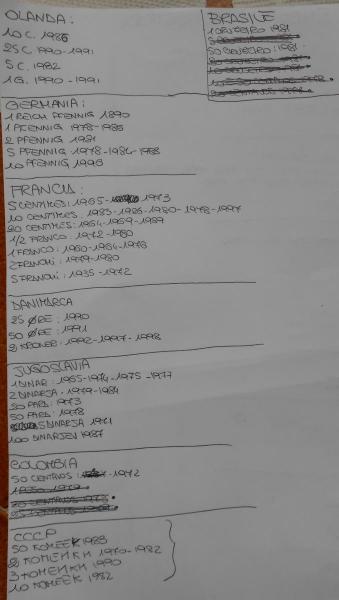 OLANDA:
10 C. 1986
25 C. 1990-1991
5 C. 1982
1 G. 1990-1991
BRASILE
1 CRUZEIRO 1981
50 CRUZEIRO: 1981
GERMANIA:
1 REICH PFENNIG 1890
1 PFENNIG 1978-1986
2 PFENNIG 1981
5 PFENNIG 1978-1984-1988
10 PFENNIG 1996
FRANCIA:
5 CENTIMES: 1965- 1973
10 CENTIMES: 1983-1986-1980-1978-1997
20 CENTIMES: 1964-1969-1989
1/2 FRANCO: 1972-1980
1 FRANCO: 1960-1964-1976
2 FRANCHI: 1979-1980
5 FRANCHI: 1935-1972
DANIMARCA
25 ØRE: 1990
50 ØRE: 1991
2 KRONER: 1992-1997-1998
JUGOSLAVIA
1 DINAR: 1965-1974-1975-1977
2 DINARJA: 1979-1984
50 PARA: 1973
50 PARA: 1978
5 DINARJA 1971
100 DINARJEV 1987
COLOMBIA
50 CENTAVOS: 1972
1 PESO 1979
25 CENTAVOS 1979
CCCP
50 КОПЕЕК 1988
2 КОПЕЙКИ 1970-1982
3 КОПЕЙКИ 1990
10 КОПЕЕК 1982